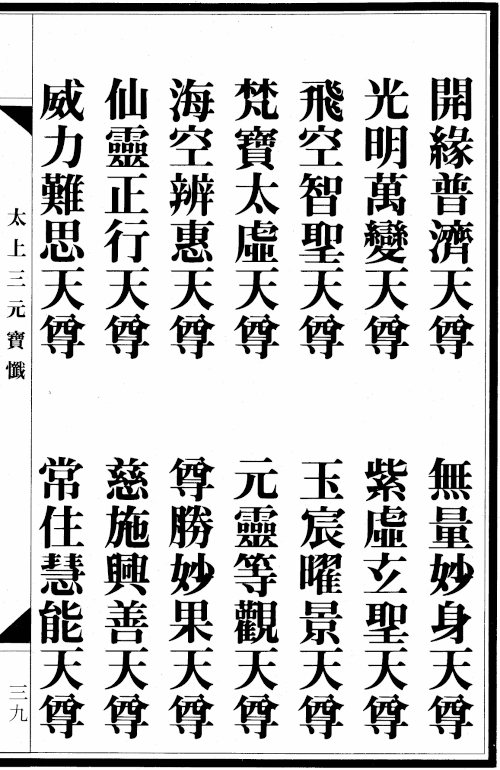 開緣普濟天尊　無量妙身天尊
光明萬變天尊　紫虛玄聖天尊
飛空智聖天尊　玉宸曜景天尊
梵寶太虛天尊　元靈等觀天尊
海空辨惠天尊　尊勝妙果天尊
仙靈正行天尊　慈施興善天尊
威力難思天尊　常住慧能天尊
太上三元寶懺
三九